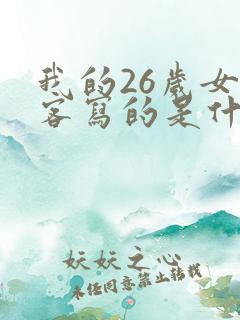 我的26歲女
客寫的是什
妖妖之心
未经同意禁止转载